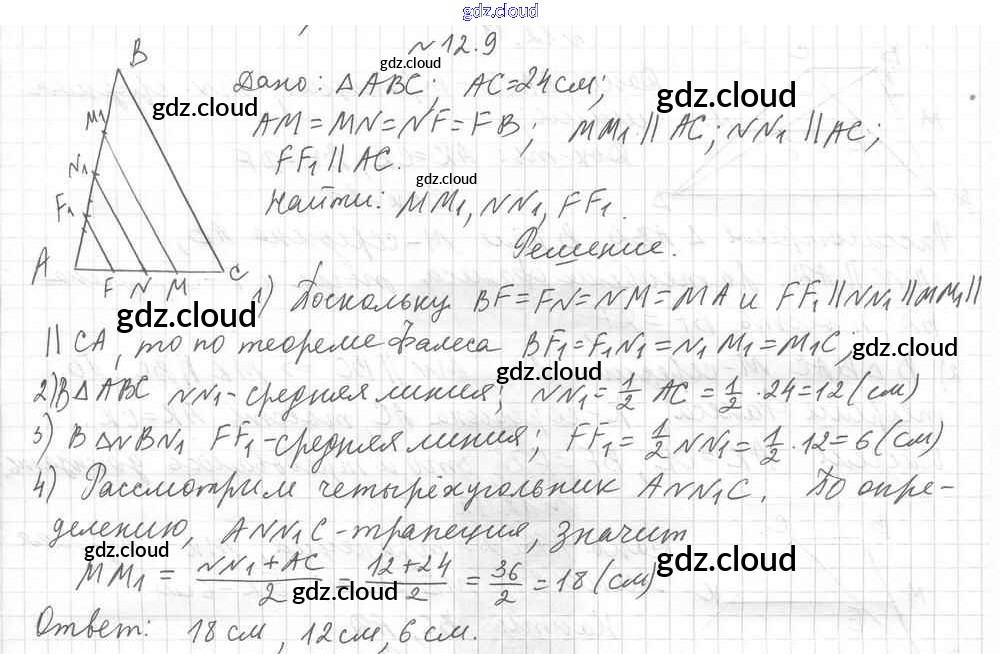 gdz.cloud
№12.9
B
Дано: △ABC; AC=24см;
gdz.cloud
gdz.cloud
gdz.cloud
M1
AM=MN=NF=FB; MM1 ∥ AC; NN1 ∥ AC;
N1
FF1 ∥ AC.
gdz.cloud
F1
Найти: MM1, NN1, FF1.
Решение.
A
C
F N M
1) Поскольку BF=FN=NM=MA и FF1∥NN1∥MM1∥
gdz.cloud
∥ CA, то по теореме Фалеса BF1=F1N1=N1M1=M1C;
gdz.cloud
gdz.cloud
2) В △ABC NN1-средняя линия; NN1=1/2 AC=1/2·24=12(см)
3) В △NBN1 FF1-средняя линия; FF1=1/2 NN1=1/2·12=6(см)
4) Рассмотрим четырёхугольник ANN1C. По опре-
делению, ANN1C-трапеция, значит
gdz.cloud
gdz.cloud
MM1 = (NN1+AC)/2 = (12+24)/2 = 36/2 = 18(см)
gdz.cloud
Ответ: 18см, 12см, 6см.
gdz.cloud